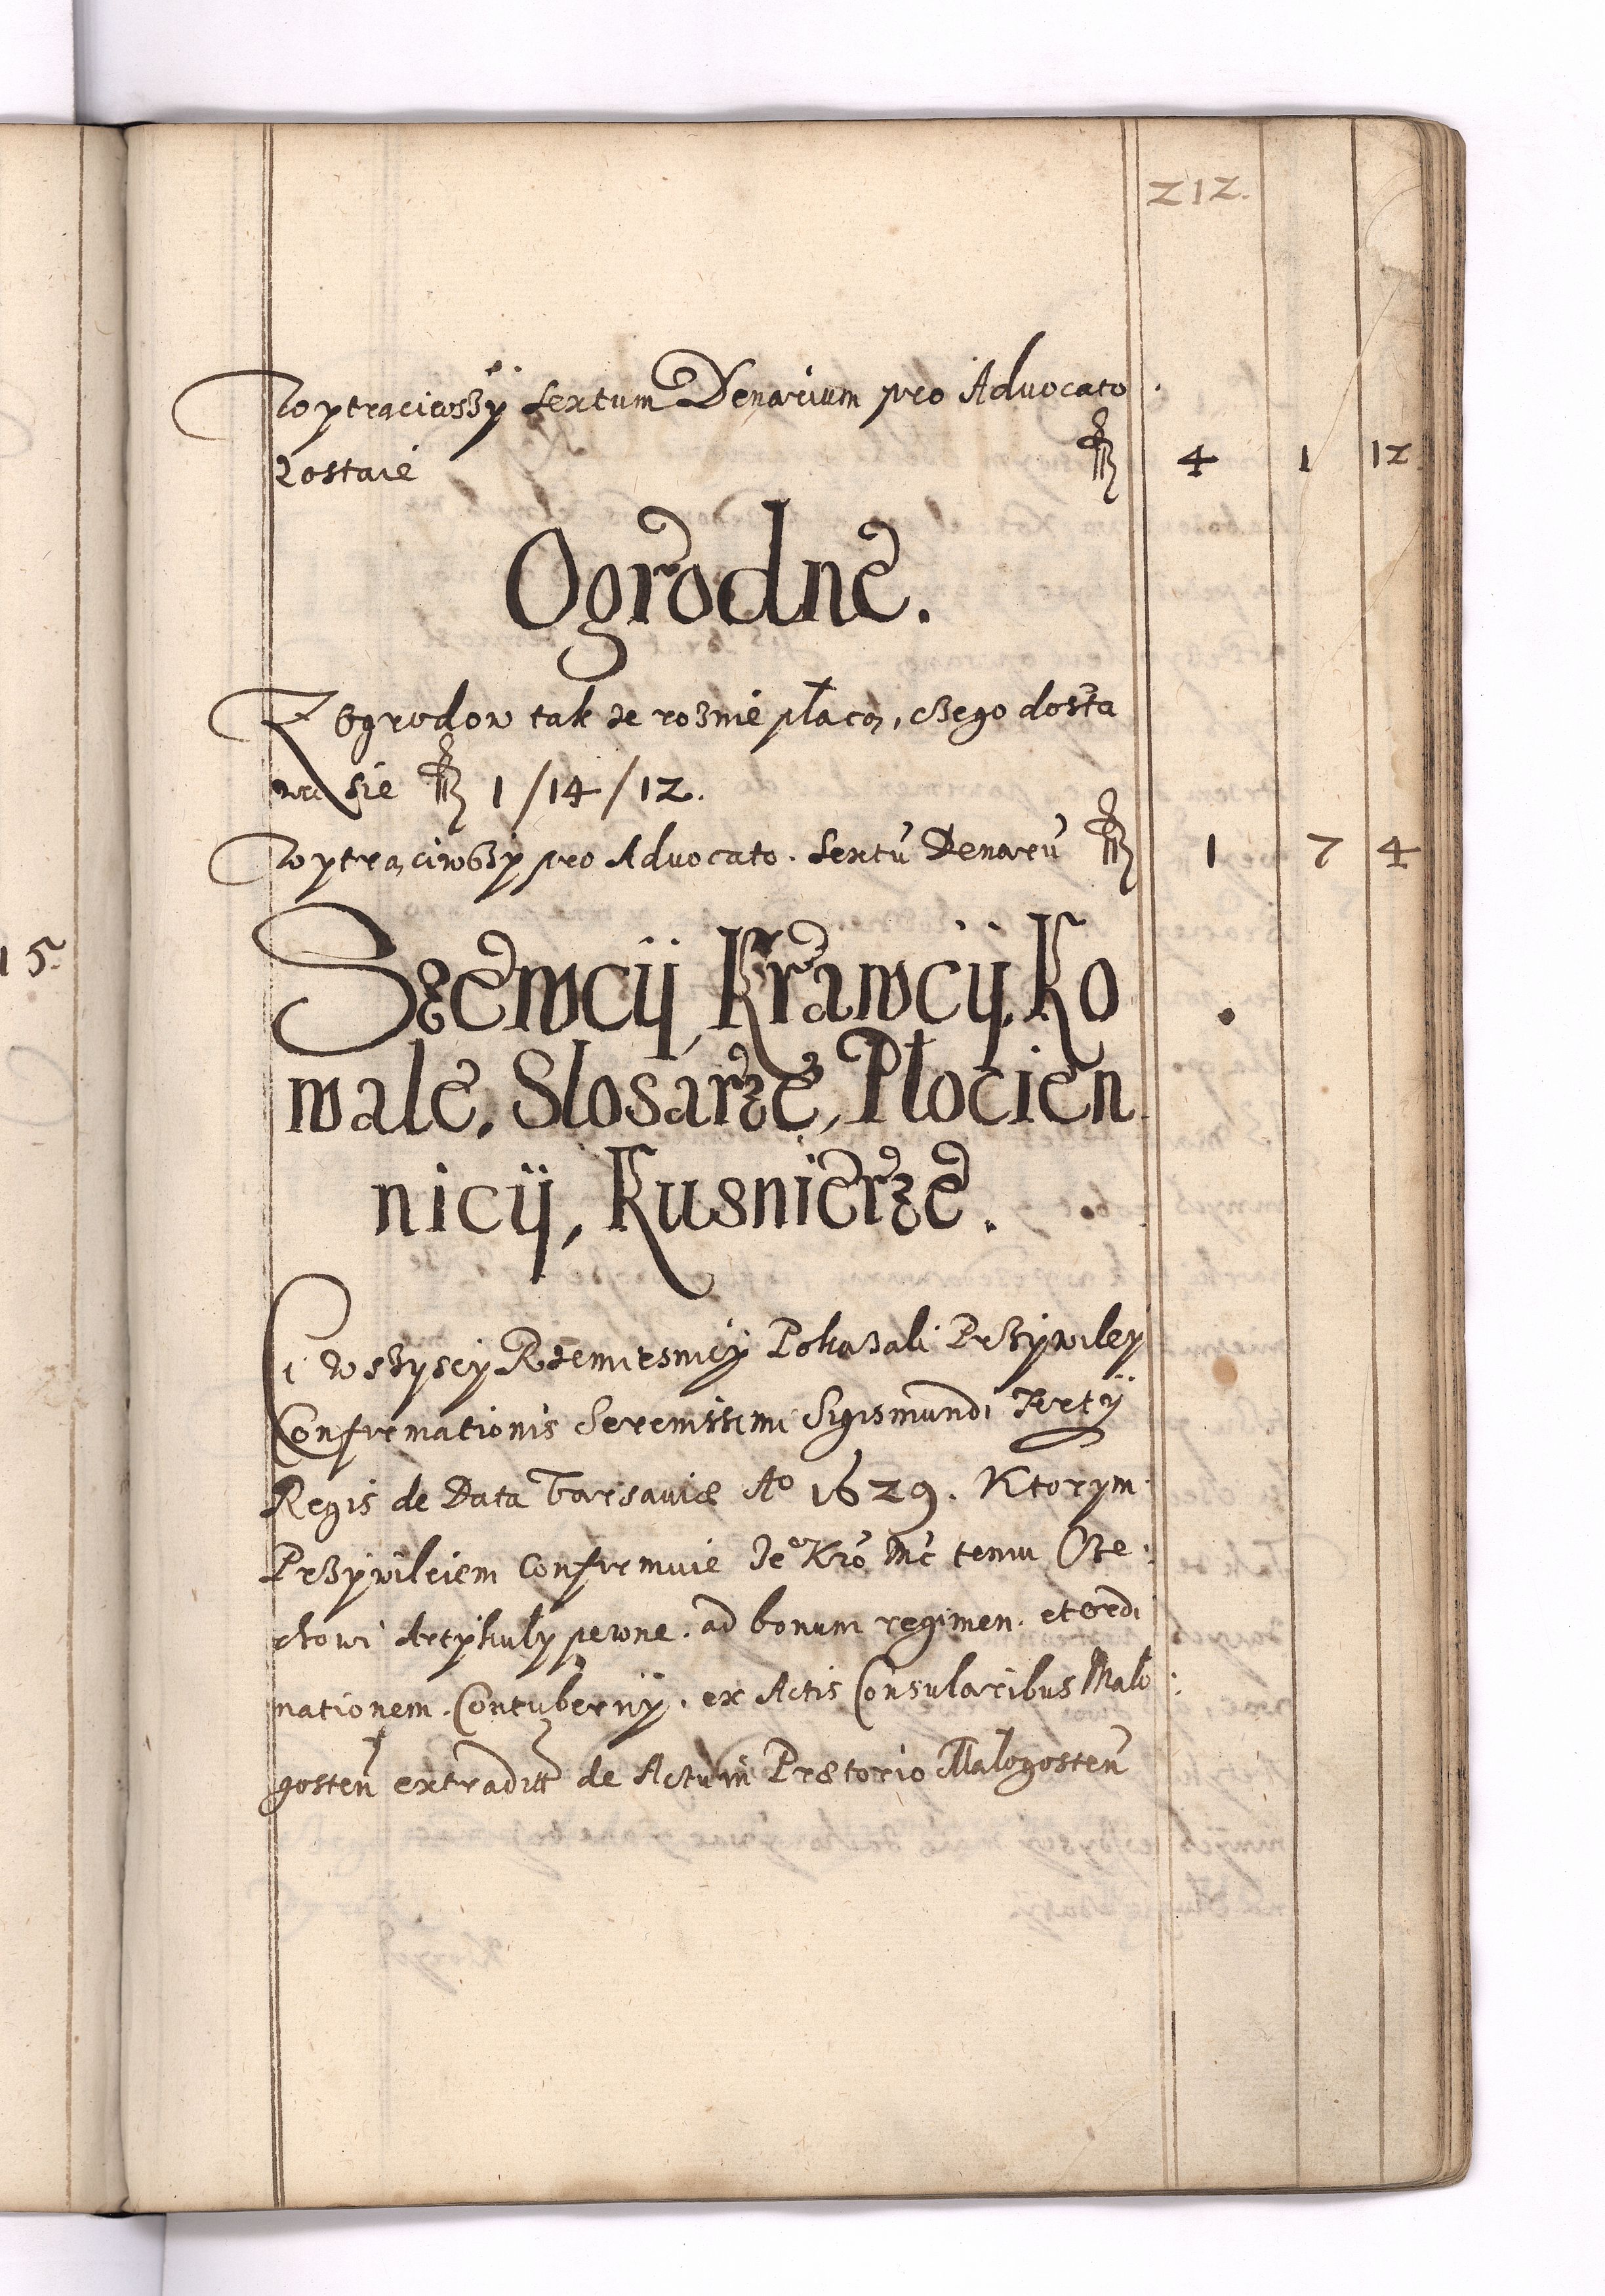 212.
Wytraciwszÿ sextum Denarium pro Advocato
zostaie fl 4 1 12
Ogrodne.
Z Ogrodow tak ze roznie płacą, czego dosta
wa sie fl 1/14/12.
Wytrąciwszy pro Advocato. Sextū Denarū fl 1 7 4
Szewcÿ, Krawcÿ, Ko
wale, Slosarze, Płocien
nicÿ, Kusnierze.
Ci wszyscy Rzemiesnicÿ Pokazali Przÿwiley
Confirmationis Serenissimi Sigismundi Tertÿ
Regis de Data Varsaviæ Aº 1629. Ktorym
Przÿwileiem confirmuie Jeº Kró Mć temu Cze
chowi Artykuly pewne. ad bonum regimen. et ordi
nationem. Contubernÿ. ex Actis Consularibus Malo
gosten̄ extradit̄t de Actu in Prætorio Małogosten̄
15.